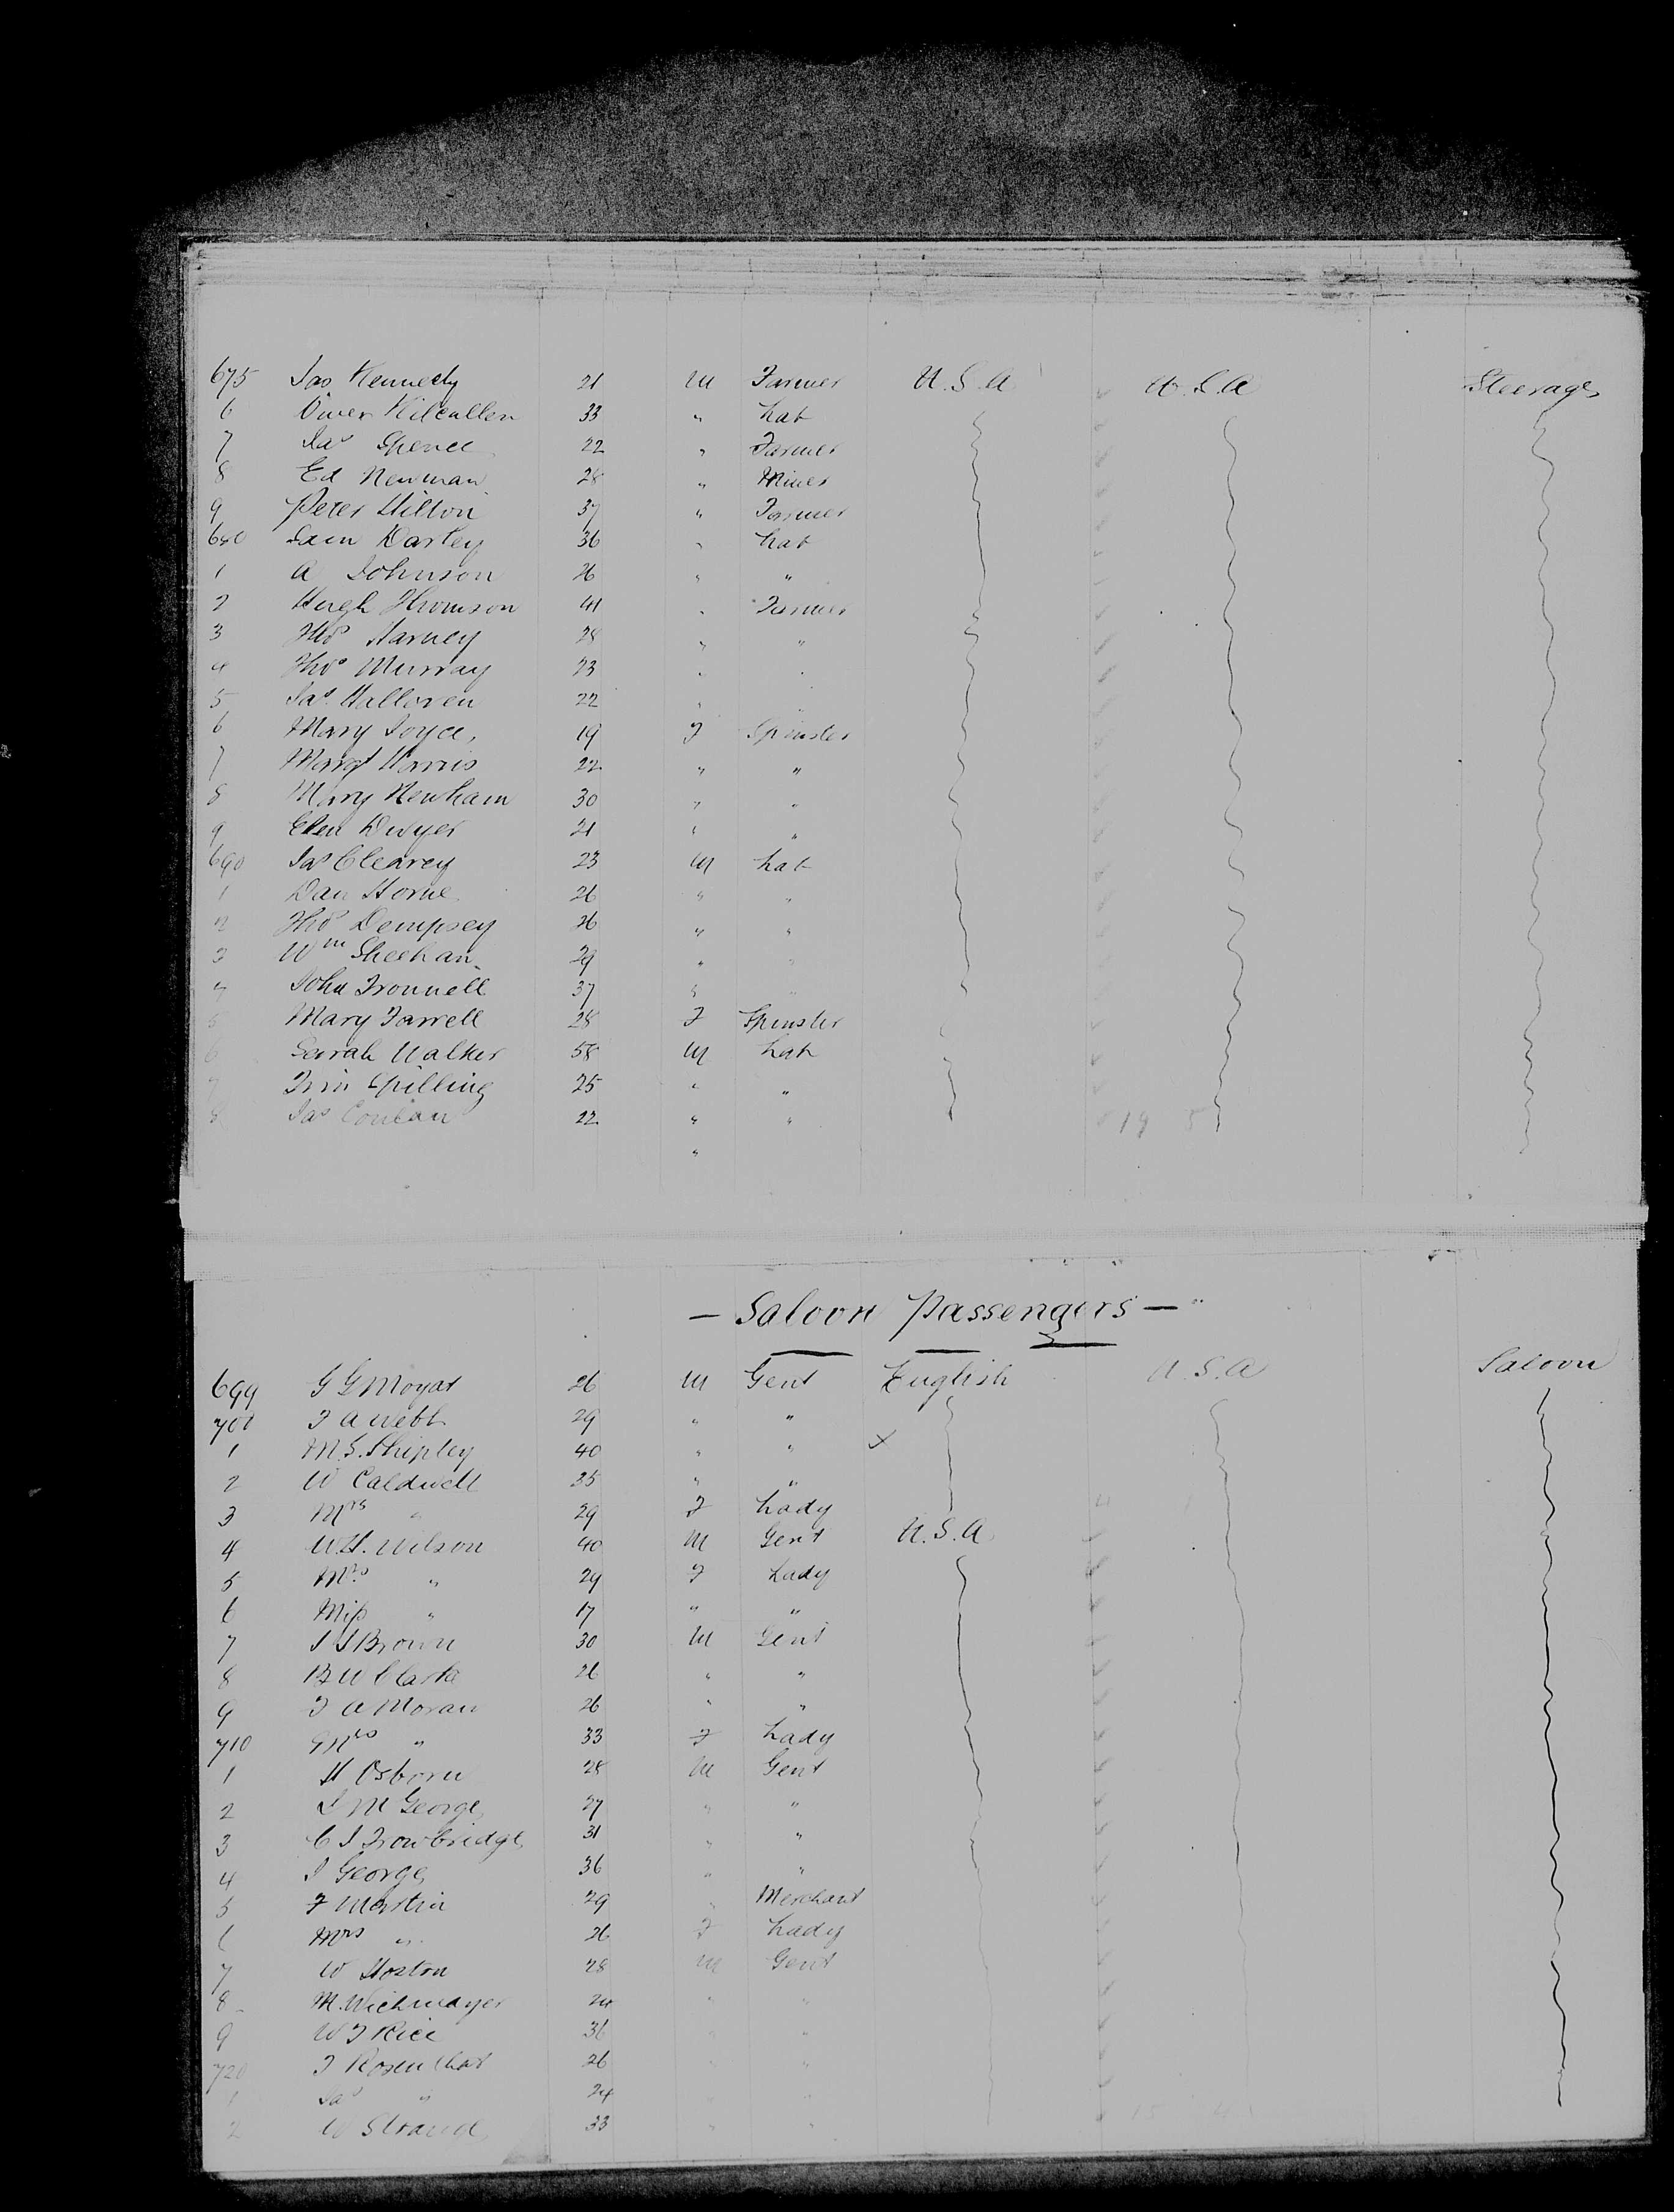 675 Jas Kennedy 21 M Farmer U.S.A U.S.A Steerage
6 Owen Kilcullen 33 " Lab
7 Jas Spence 22 " Farmer
8 Ed Newman 28 " Miner
9 Peter Hilton 37 " Farmer
680 Sam Darley 36 " Lab
1 A Johnson 26 " "
2 Hugh Thomson 41 " Farmer
3 Thos Harney 28 " "
4 Thos Murray 23 " "
5 Jas Halloren 22 " "
6 Mary Joyce 19 F Spinster
7 Margt Harris 22 " "
8 Mary Newham 30 " "
9 Ellen Dwyer 21 " "
690 Jas Clearey 23 M Lab
1 Dan Horne 26 " "
2 Thos Dempsey 26 " "
3 Wm Sheehan 29 " "
4 John 37 " "
5 Mary Farrell 28 F Spinster
6 Sarah Walker 58 M Lab
7 Spilling 25 " "
8 Jas Conlan 22 " "
"
- Saloon Passengers -
699 G G Moyat 26 M Gent English U.S.A Saloon
700 F A Webb 29 " "
1 M.S. Shipley 40 " " x
2 W Caldwell 35 " "
3 Mrs " 29 F Lady
4 W.H. Wilson 40 M Gent U.S.A.
5 Mrs " 29 F Lady
6 Miss " 17 " "
7 J J Brown 30 M Gent
8 B W Clarke 26 " "
9 F A Moran 26 " "
710 Mrs " 33 F Lady
1 H Osborn 28 M Gent
2 J M George 27 " "
3 C J Trowbridge 31 " "
4 J George 36 " "
5 F Martin 29 " Merchant
6 Mrs " 26 F Lady
7 W Hoston 28 M Gent
8 M. Wichmayer 24 " "
9 W F Rice 36 " "
720 F Rosenthal 26 " "
1 Jas " 24 " "
2 W Strand 33 " "